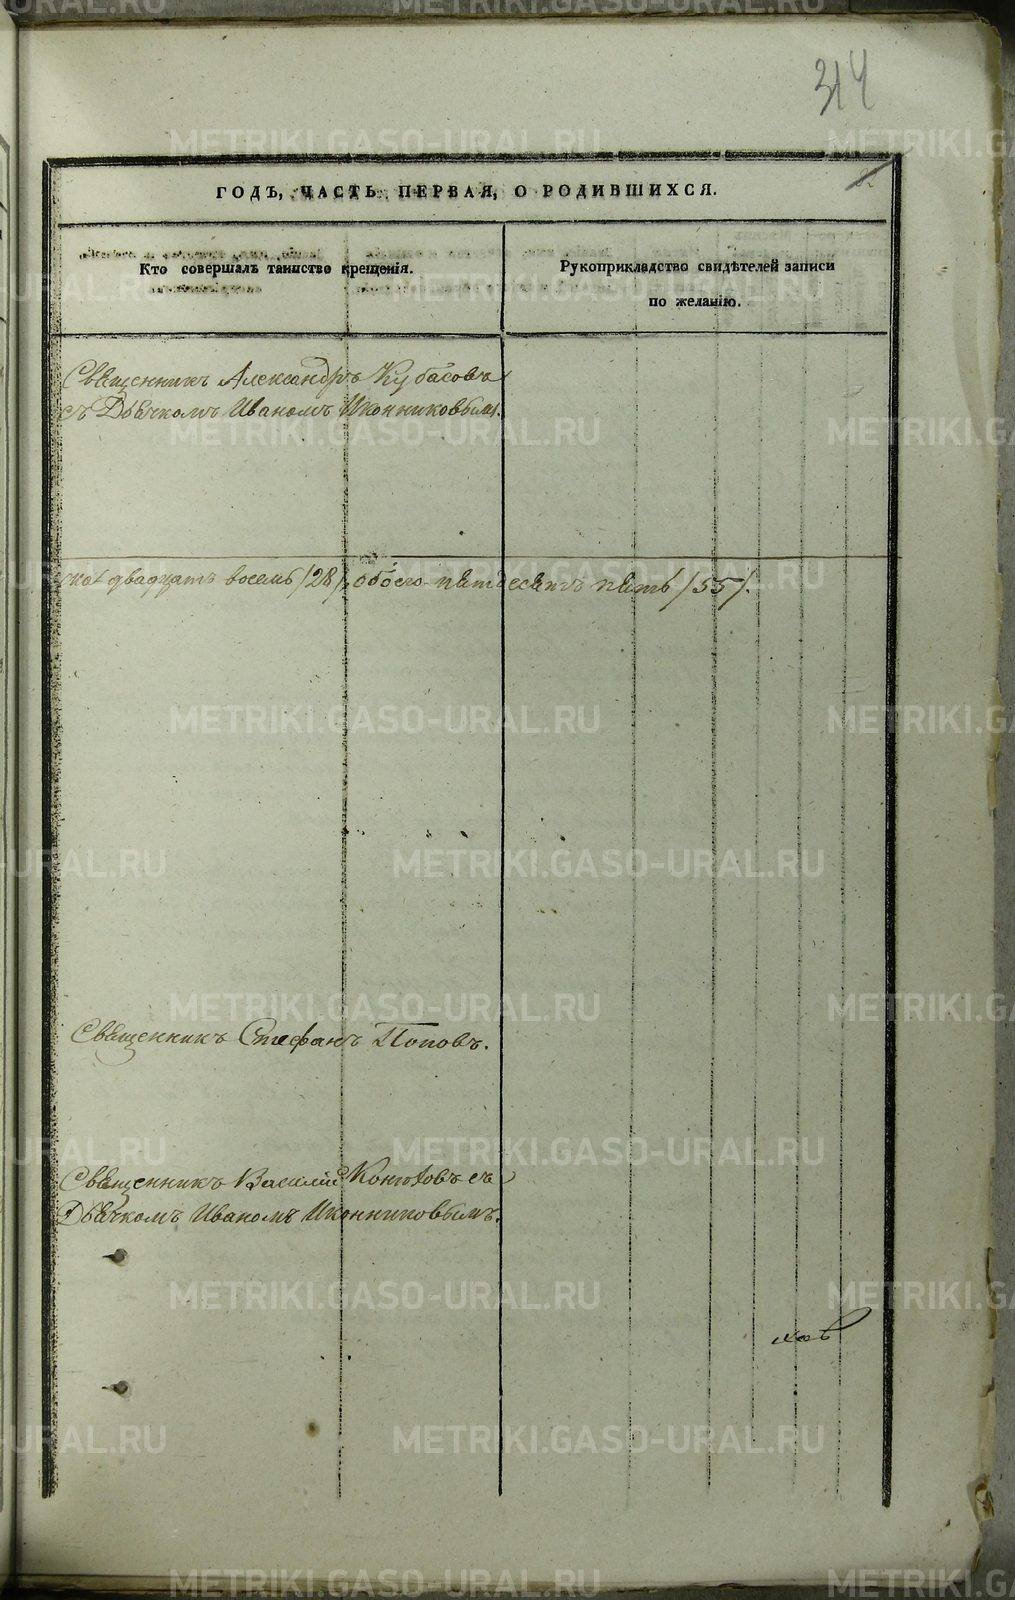 314
ГОДЪ, ЧАСТЬ ПЕРВАЯ, О РОДИВШИХСЯ.
Кто совершалъ таинство крещенія.
Рукоприкладство свидѣтелей записи
по желанію.
Священникъ Александръ Кубасовъ
съ Дьячкомъ Иваномъ Иконниковымъ.
двадцать восемь /28/, обоего пятдесятъ пять /55/.
Священникъ Стефанъ Поповъ.
Священникъ Василій съ
Дьячкомъ Иваномъ Иконниковымъ.
METRIKI.GASO-URAL.RU